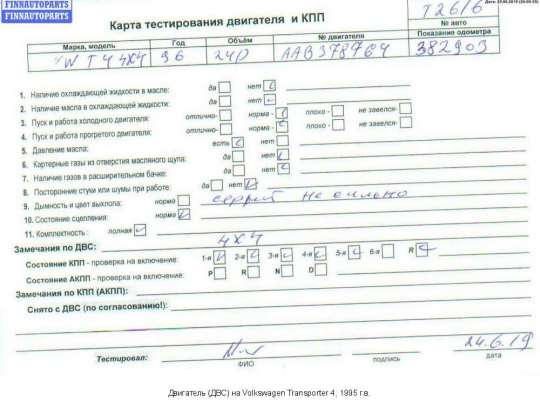 FINNAUTOPARTS
FINNAUTOPARTS
Карта тестирования двигателя и КПП
T26/6
№ авто
Марка, модель Год Объём № двигателя Показание одометра
VW T4 4X4 96 2,4D AAB378764 382903
1. Наличие охлаждающей жидкости в масле: да нет
2. Наличие масла в охлаждающей жидкости: да нет
3. Пуск и работа холодного двигателя: отлично- норма - плохо - не завелся-
4. Пуск и работа прогретого двигателя: отлично- норма - плохо - не завелся-
5. Давление масла: есть нет
6. Картерные газы из отверстия масляного щупа: да нет
7. Наличие газов в расширительном бачке: да нет
8. Посторонние стуки или шумы при работе: да нет
9. Дымность и цвет выхлопа: норма серый не сильно
10. Состояние сцепления: норма
11. Комплектность : полная
Замечания по ДВС: 4X4
Состояние КПП - проверка на включение: 1-я 2-я 3-я 4-я 5-я 6-я R
Состояние АКПП - проверка на включение: P R N D
Замечания по КПП (АКПП):
Снято с ДВС (по согласованию!):
Тестировал: 24.6.19
ФИО подпись дата
Двигатель (ДВС) на Volkswagen Transporter 4, 1995 г.в.